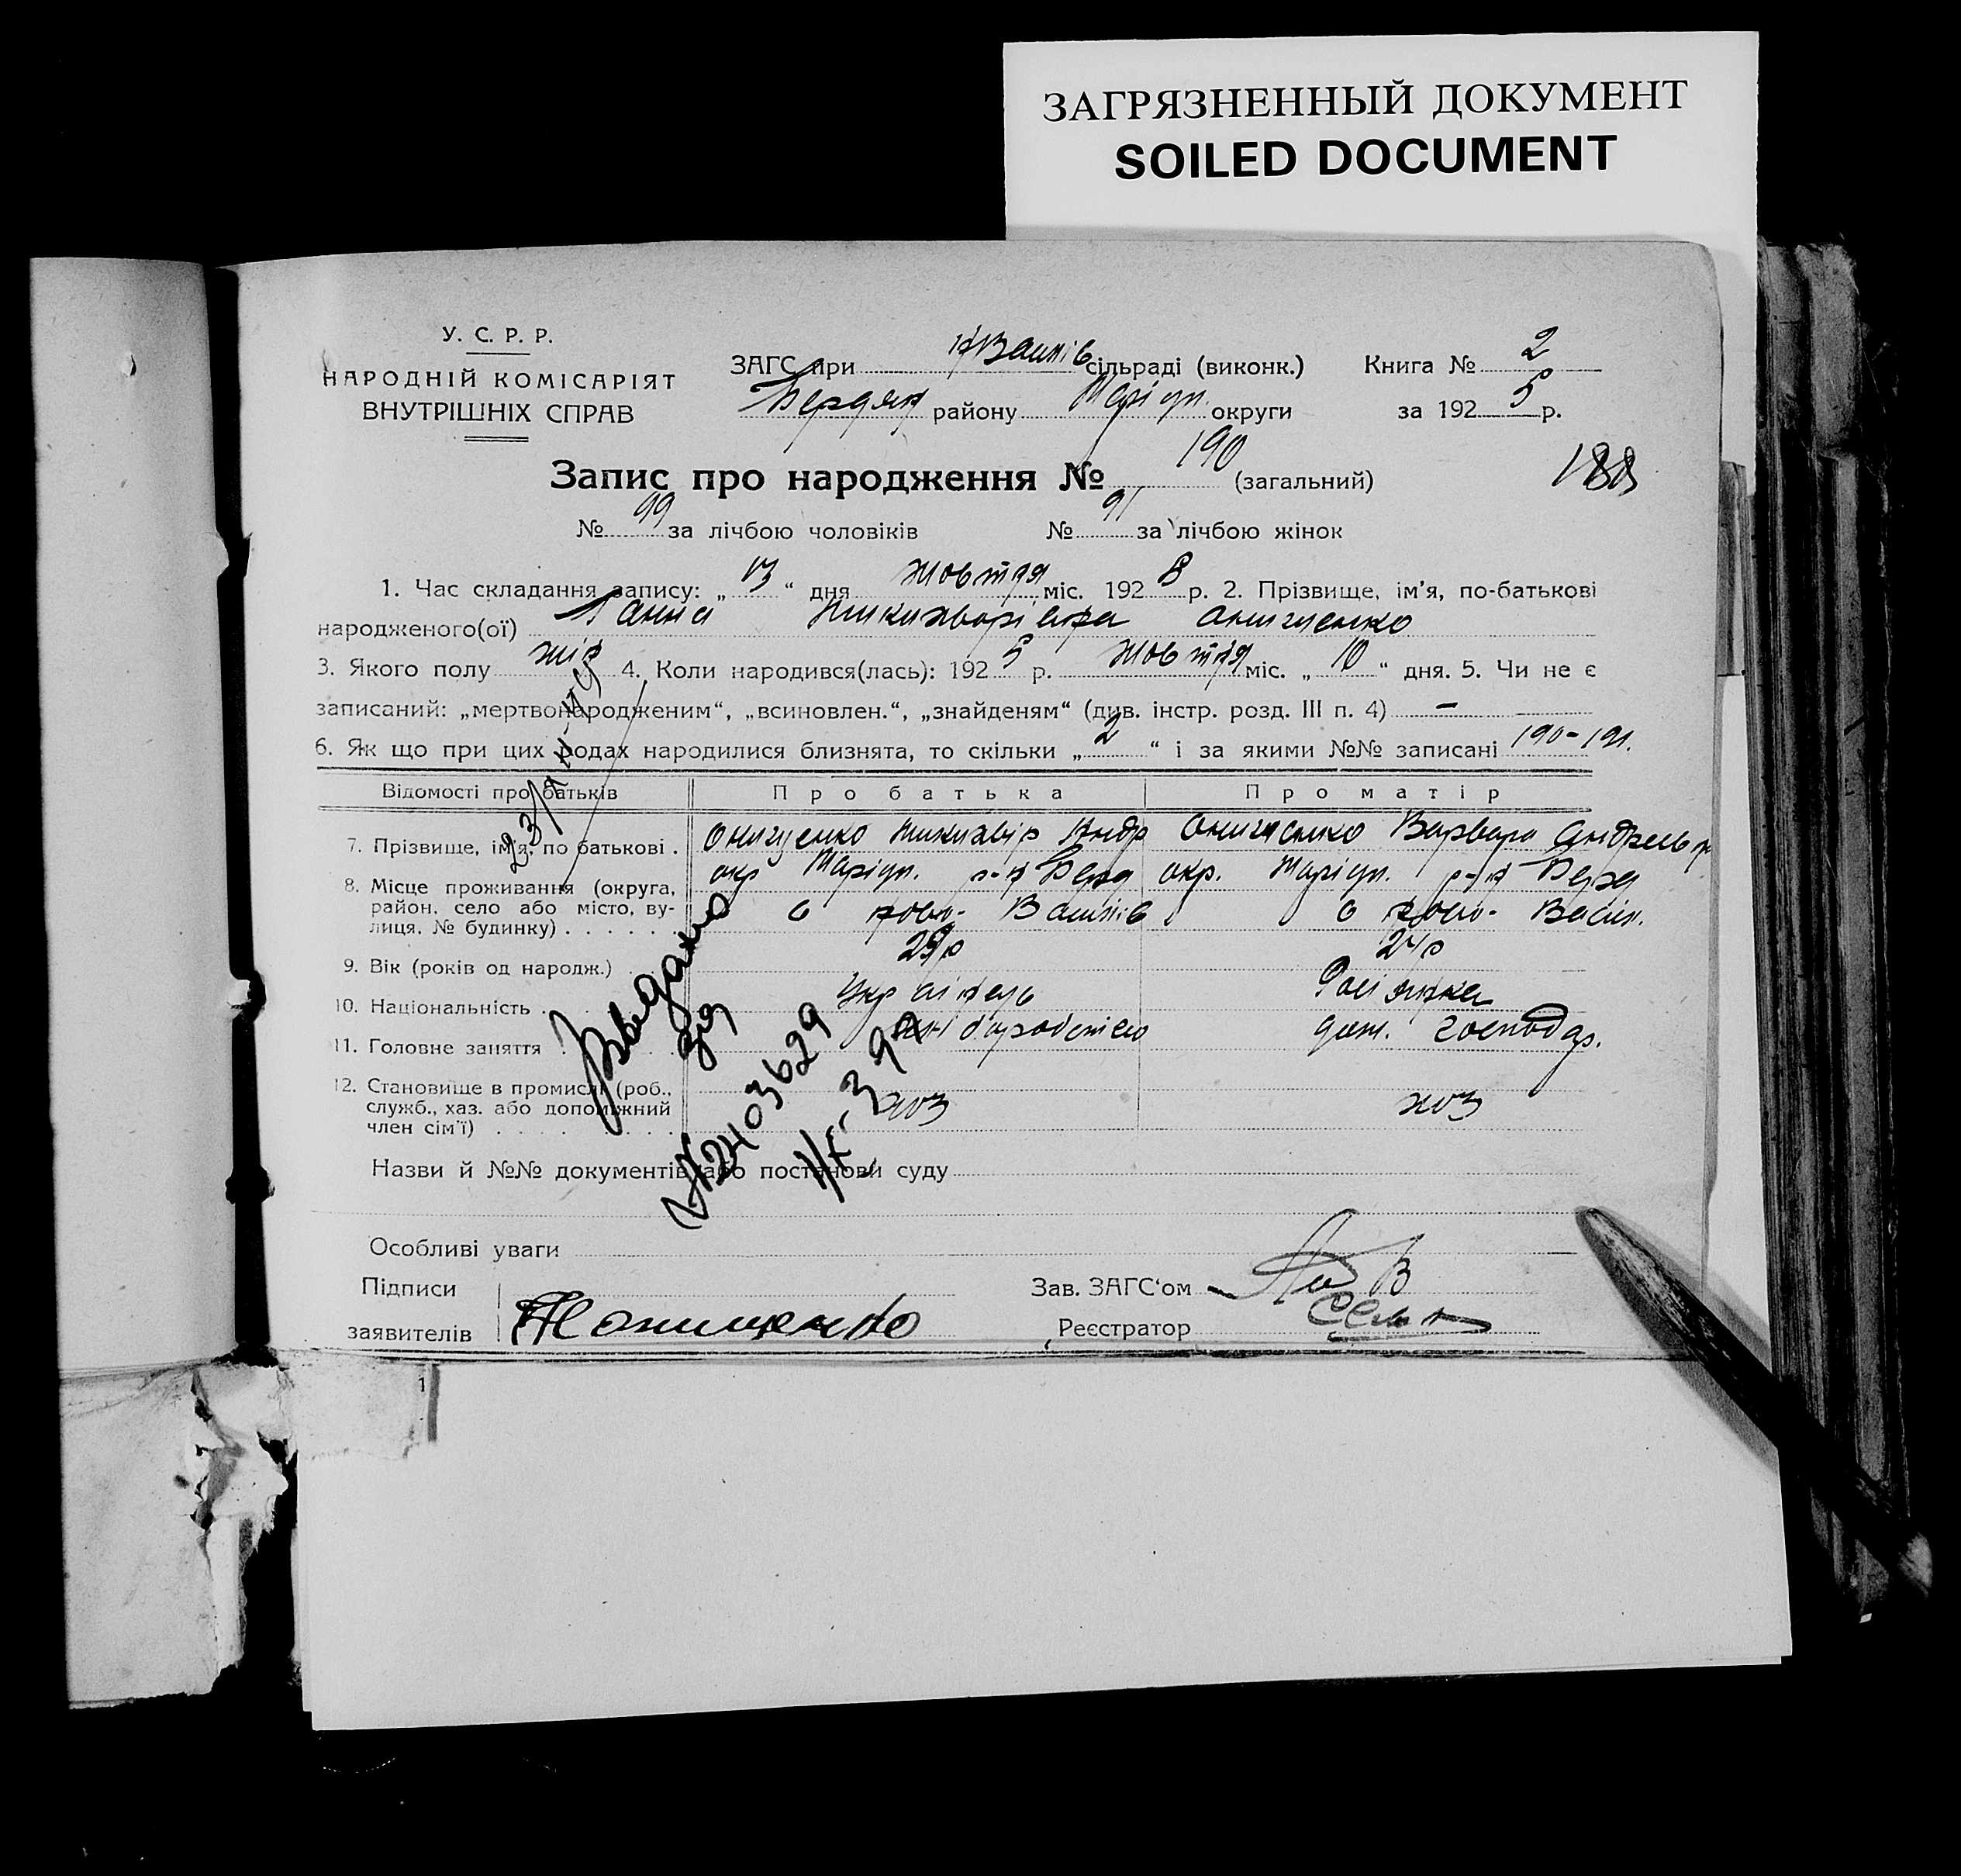 ЗАГРЯЗНЕННЫЙ ДОКУМЕНТ
SOILED DOCUMENT
У. С. Р. Р.
НАРОДНІЙ КОМІСАРІЯТ
ВНУТРІШНІХ СПРАВ
ЗАГС при сільраді (виконк.) Книга № 2
Бердян району Маріуп. округи за 1925 р.
Запис про народження № 190 (загальний)
188
№ 99 за лічбою чоловіків № 91 за лічбою жінок
1. Час складання запису: „13“ дня жовтня міс. 192 р. 2. Прізвище, ім'я, по-батькові
народженого(ої) Ганна Онищенко
3. Якого полу жін 4. Коли народився(лась): 1925 р. жовтня міс. „10“ дня. 5. Чи не є
записаний: „мертвонародженим“, „всиновлен.“, „знайденям“ (див. інстр. розд. III п. 4) –
6. Як що при цих родах народилися близнята, то скільки „2“ і за якими №№ записані 190-191.
Відомості про батьків Про батька Про матір
7. Прізвище, ім'я, по батькові . Онищенко Никихвір Андр Онищенко Варвара Андреевн
8. Місце проживання (округа, окр Маріуп. р-н Берд окр. Маріуп. р-н Берд
район, село або місто, ву- с ново- Василів с ново- Васил.
лиця, № будинку) . . . . . .
9. Вік (років од народж.) . 29р 24р
10. Національність . Українець Росіянка
11. Головне заняття . хліборобство дом. господар.
12. Становище в промислі (роб.,
служб., хаз. або допоміжний хоз хоз
член сім'ї) . . . . .
Видано
№ 2403629
Назви й №№ документів або постанови суду
Особливі уваги
Підписи Зав. ЗАГС'ом
заявителів Н Онищенко Реєстратор
1